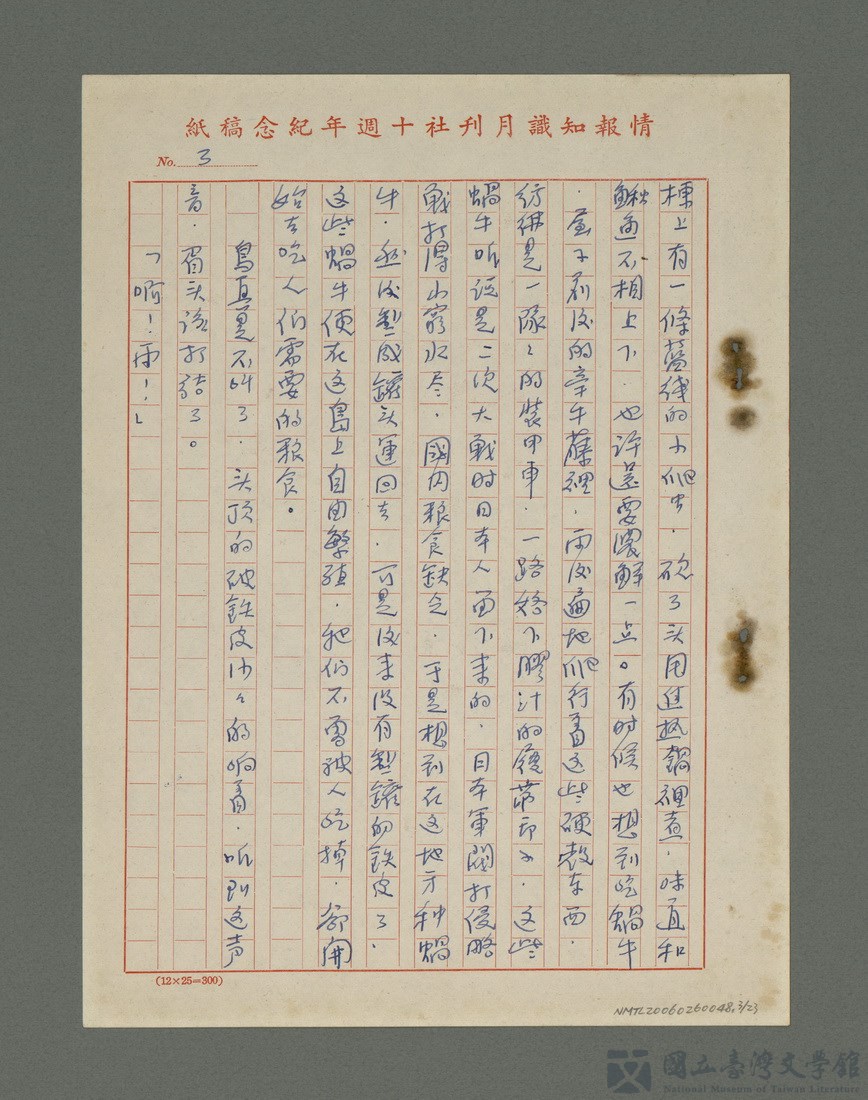 情報知識月刊社十週年紀念稿紙
No. 3
棟上有一條藍綫的小爬虫．砍了头用進热鍋裡煮．味道和
鰍魚不相上下．也许還要濃鮮一点。有时候也想到吃蝸牛
．茧子剥没的牵牛藤裡．雨後遍地爬行着这些硬殻东西．
彷彿是一隊々的裝甲車．一路烙下膠汁的履帶印子．这些
蝸牛听说是二次大戰时日本人留下来的．日本軍閥打侵略
戰打得山窮水尽．國内粮食缺乏．于是想到在这地方种蝸
牛．然後製成罐头運回去．可是後来没有製罐的鉄皮了．
这些蝸牛便在这島上自由繁殖．牠们不單被人吃掉．都開
始去吃人们需要的粮食。
鳥真是不叫了．头顶的破鉄皮沙々的响着．听到这声
音．眉头说打結了。
「啊！雨！」
(12×25=300)
NMTL20060260048,3/23
國立臺灣文學館
National Museum of Taiwan Literature